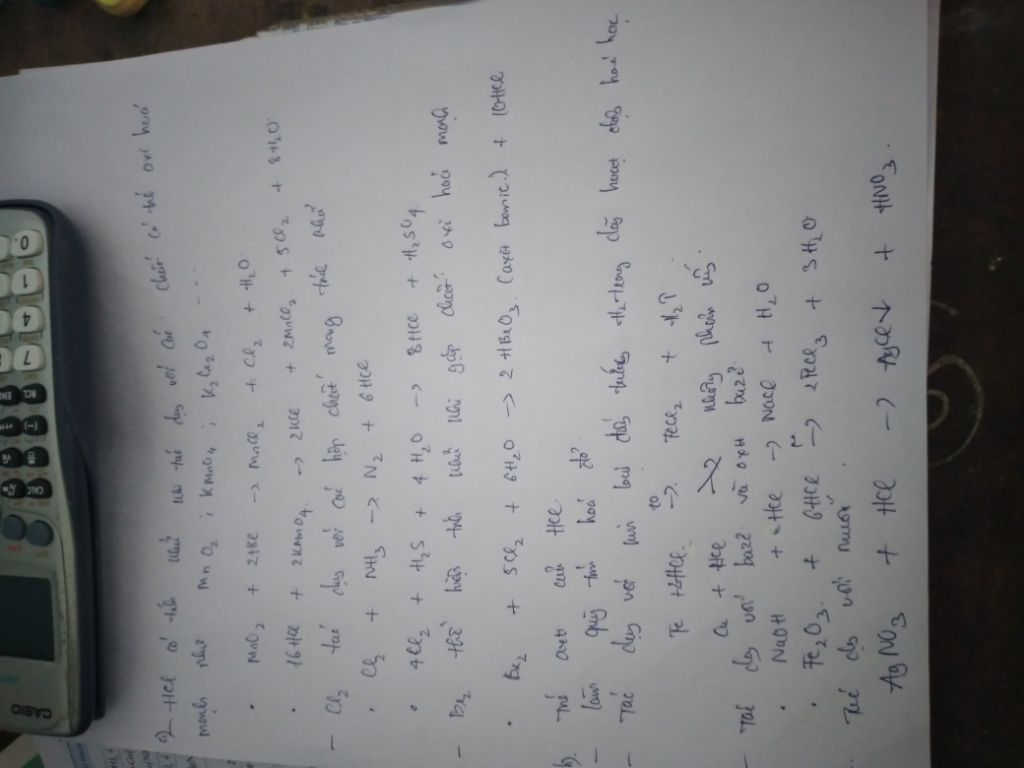 2 - HCl có tính khử khi tác dụng với các chất có tính oxi hoá
mạnh như MnO2 ; KMnO4 ; K2Cr2O7 ...
• MnO2 + 2HCl -> MnCl2 + Cl2 + H2O.
• 16HCl + 2KMnO4. -> 2KCl + 2MnCl2 + 5Cl2 + 8H2O
- Cl2 tác dụng với các hợp chất mang tính khử
• Cl2 + NH3 -> N2 + 6HCl
• 4Cl2 + H2S + 4H2O -> 8HCl + H2SO4.
- Br2 thể hiện tính khử khi gặp chất oxi hoá mạnh
• Br2 + 5Cl2 + 6H2O -> 2HBrO3. (axit bromic) + 10HCl
b). Tính axit của HCl.
- làm quỳ tím hoá đỏ.
- Tác dụng với kim loại đứng trước H2 trong dãy hoạt động hoá học
Fe + 2HCl. t° -> FeCl2 + H2↑
Cu + HCl không phản ứng.
- Tác dụng với bazơ và oxit bazơ.
• NaOH + HCl -> NaCl + H2O
• Fe2O3. + 6HCl t° -> 2FeCl3 + 3H2O
Tác dụng với muối.
AgNO3 + HCl -> AgCl↓ + HNO3.
CASIO
7 4 1 0